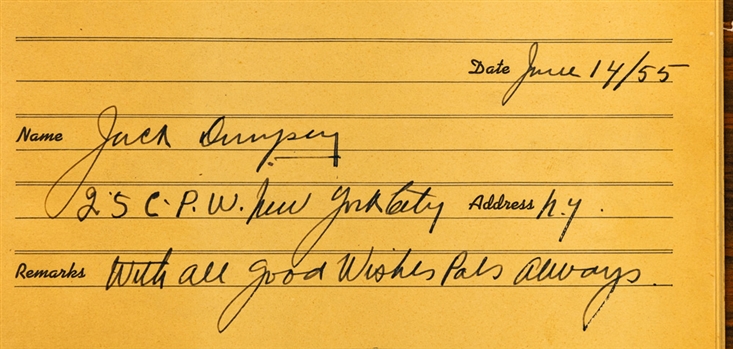 Date June 14/55
Name Jack Dempsey
25 C. P. W. New York City Address N.Y.
Remarks With all good Wishes Pals Always.